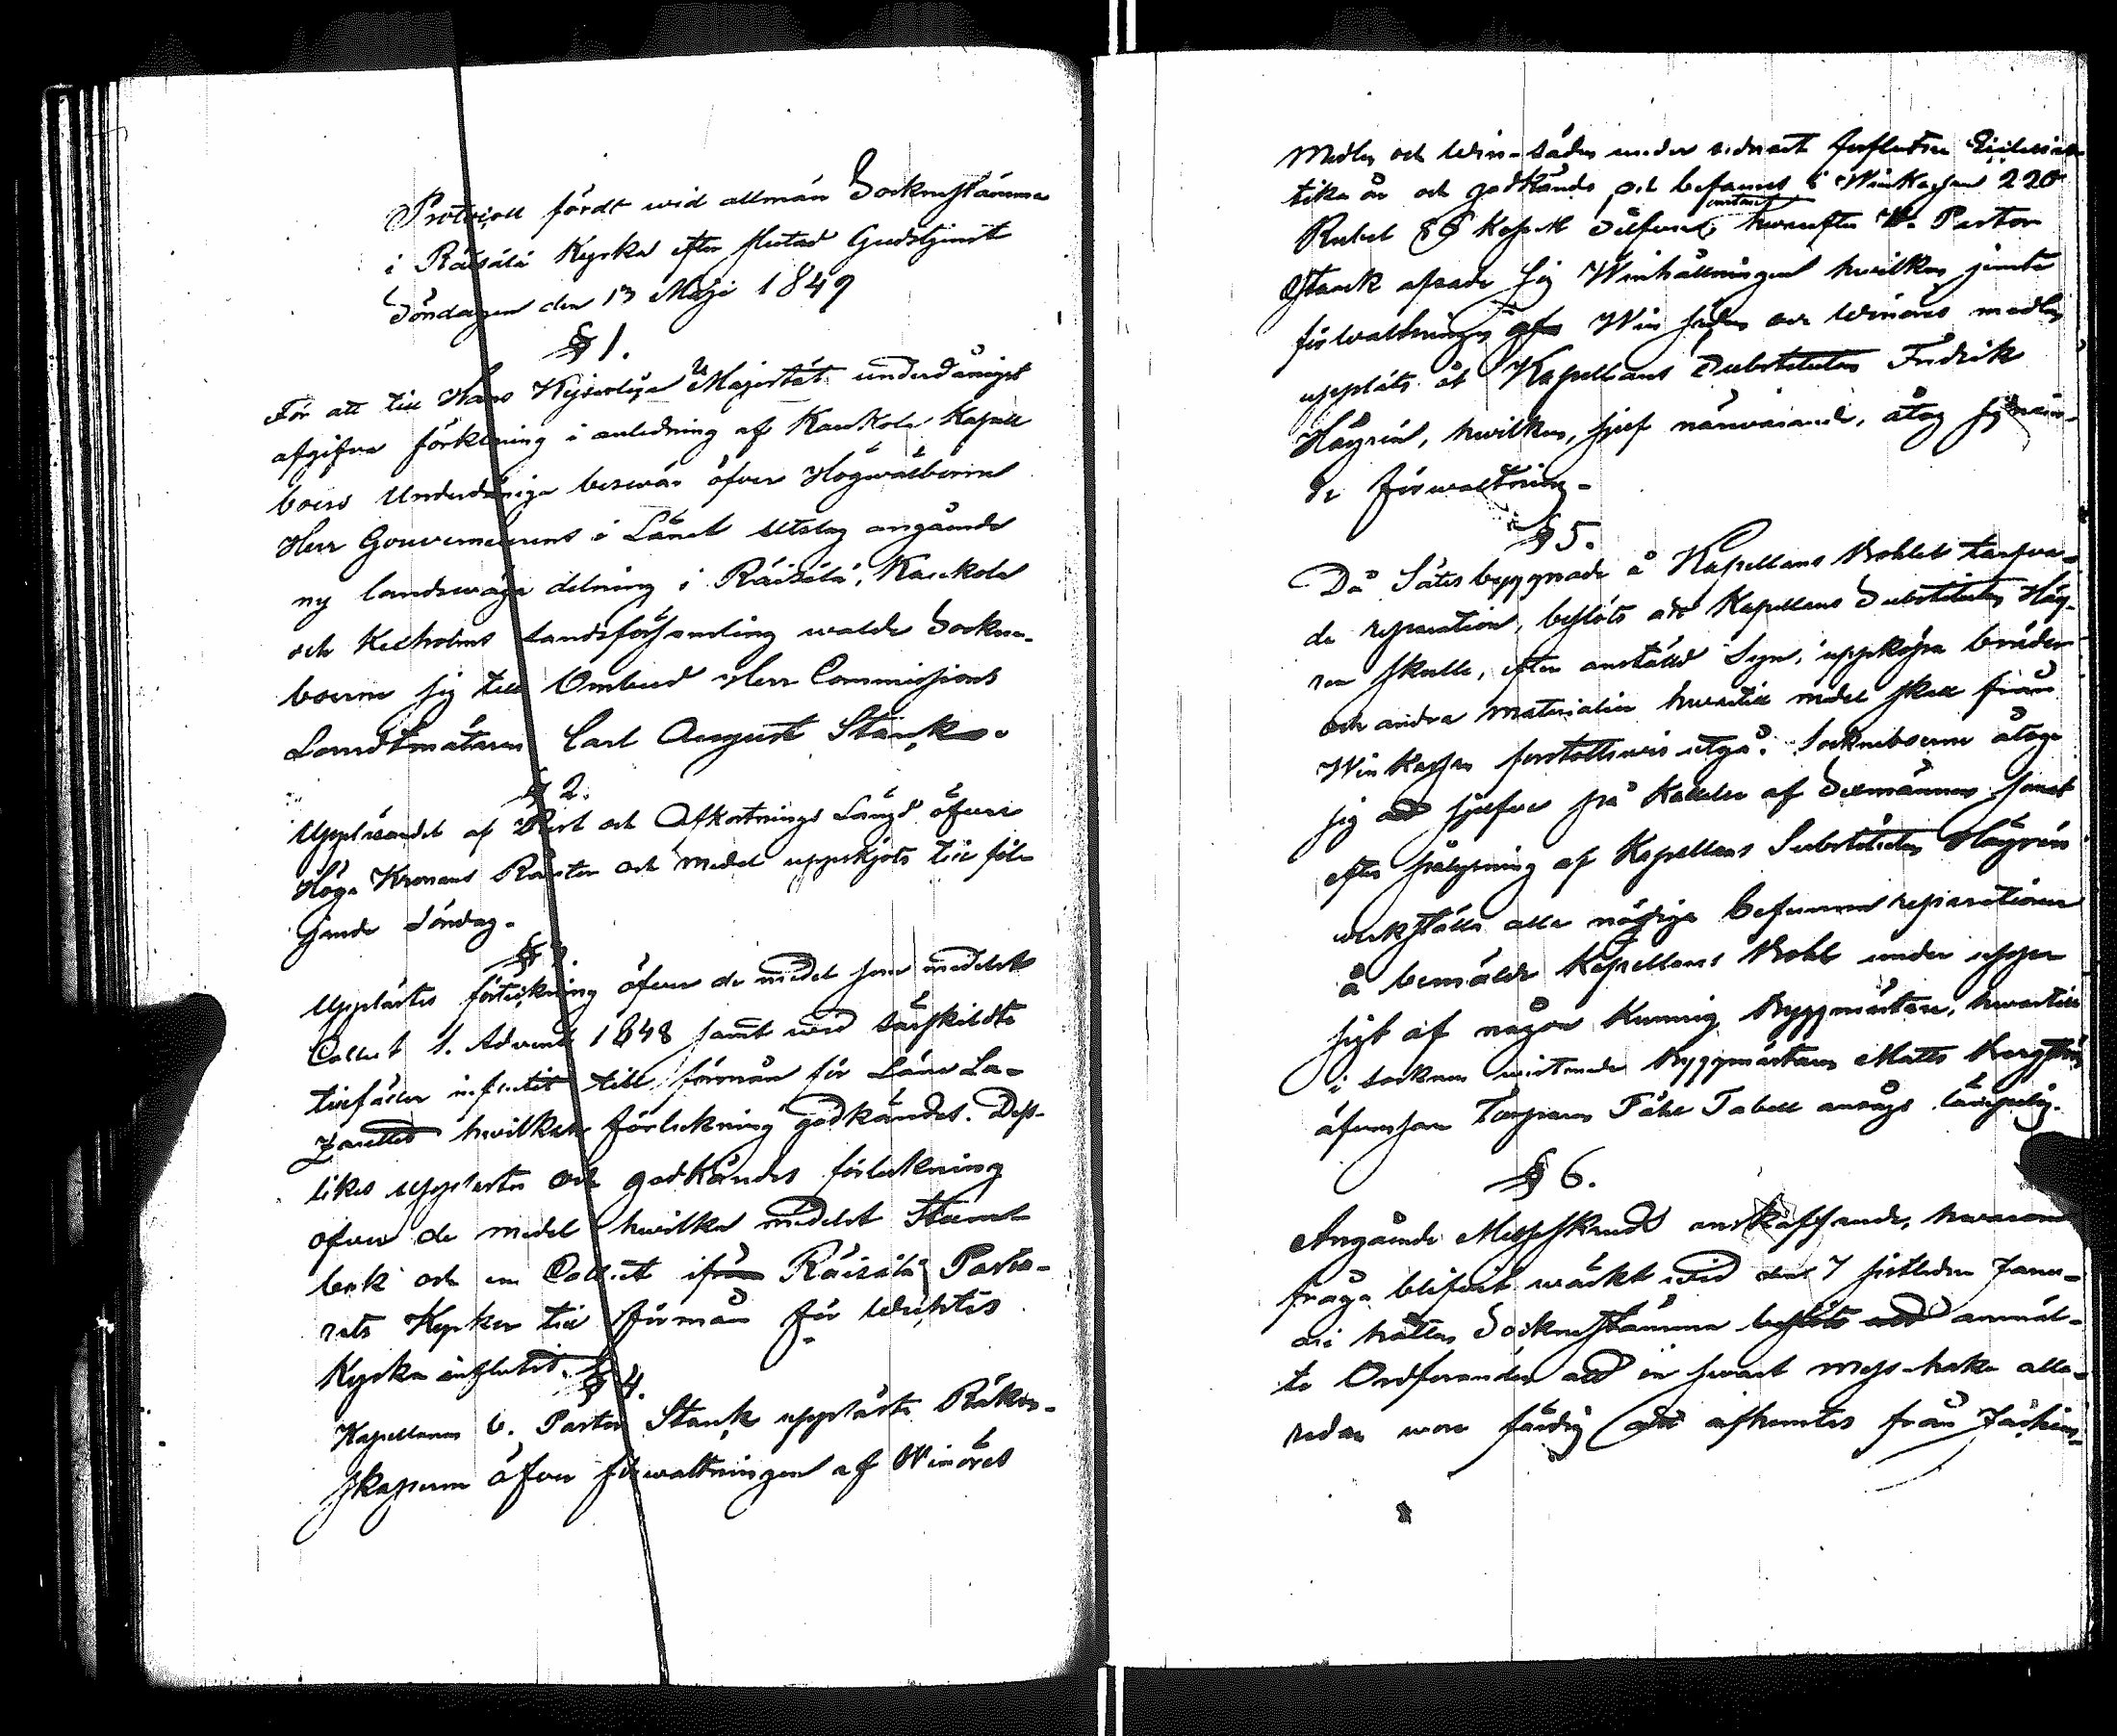 Protocoll fördt wid allmän Sockenstämma
i Räisälä Kyrka efter slutad Gudstjenst
Söndagen den 13 Maji 1849
§ 1.
För att till Hans Kejserliga Majestät underdånigst
afgifva förklaring i anledning af Kaukola Kapell
boers Underdåniga beswär öfver Högwälborne
Herr Gouverneurens i Länet utslag angående
ny landswäga delning i Räisälä, Kaukola
och Kexholms landsförsamling walde Sockne-
boerne sig till Ombud Herr Commissions
Landtmätaren Carl August Starck.
§ 2.
Uppläsandet af Rest och Afkortnings Längd öfver
Höga Kronans Räntor och medel uppskjöts till föl-
jande Söndag.
§ 3.
Upplästes förteckning öfver de medel som medelst
Collect 1. Advent 1848 samt wid särskildte
tillfällen influtit till förmån för Läns La-
zarettet hvilken förteckning godkändes. Dess-
likes upplästes och godkändes förteckning
öfver de medel hwilka medelst Stamb-
bok och en Collect ifrån Räisälä Pasto-
rats Kyrkor till förmån för Wichtis
Kyrka influtit.
§ 4.
Kapellanen V. Pastor Starck uppläste Räken-
skaperne öfver förwaltningen af Winöres
Medlen och Win-säden under sednast förflutne Ecclesias-
tika år och godkändes, och befanns i WinKassan 220
Rubel 88 Kopek Silfver, hwarefter V. Pastor
Starck afsade sig Winhållningen hwilken jemte
förwaltningen af Win säden och Winöres medlen
uppläts åt Kapellans Substituten Fredrik
Högrén, hwilken, sjelf närwarande, åtog sig näm-
de förwaltning.
§ 5.
Då Sätesbyggnade å Kapellans Bohlet tarfva-
de reparation, beslöts att Kapellans Substituten Hög-
ren skulle, efter anställd Syn, uppköpa bräder
och andra materialier hwartill medel skall från
Win Kassan förskottswis utgå. Sockneboerne åtogo
sig att sjelfve på kallelse af Sexmännen samt
efter pålysning af Kapellans Substituten Högrén
werkställa alla nödiga befunna reparationer
å bemälde Kapellans Bohl under upper
sigt af någon Kunnig Byggmästare, hwartill
i socknen wistande Byggmästaren Matts
äfvensom Torparen Tabell ansågs lämpelig.
§ 6.
Angående Messeskrud anskaffande, hwarom
fråga blifvit wäckt wid den 7 sistleden Janu-
ari hållen Sockne Stämma anmäl-
te Ordföranden att en svart mess-hake alla-
redan wore färdig att afhemtas från